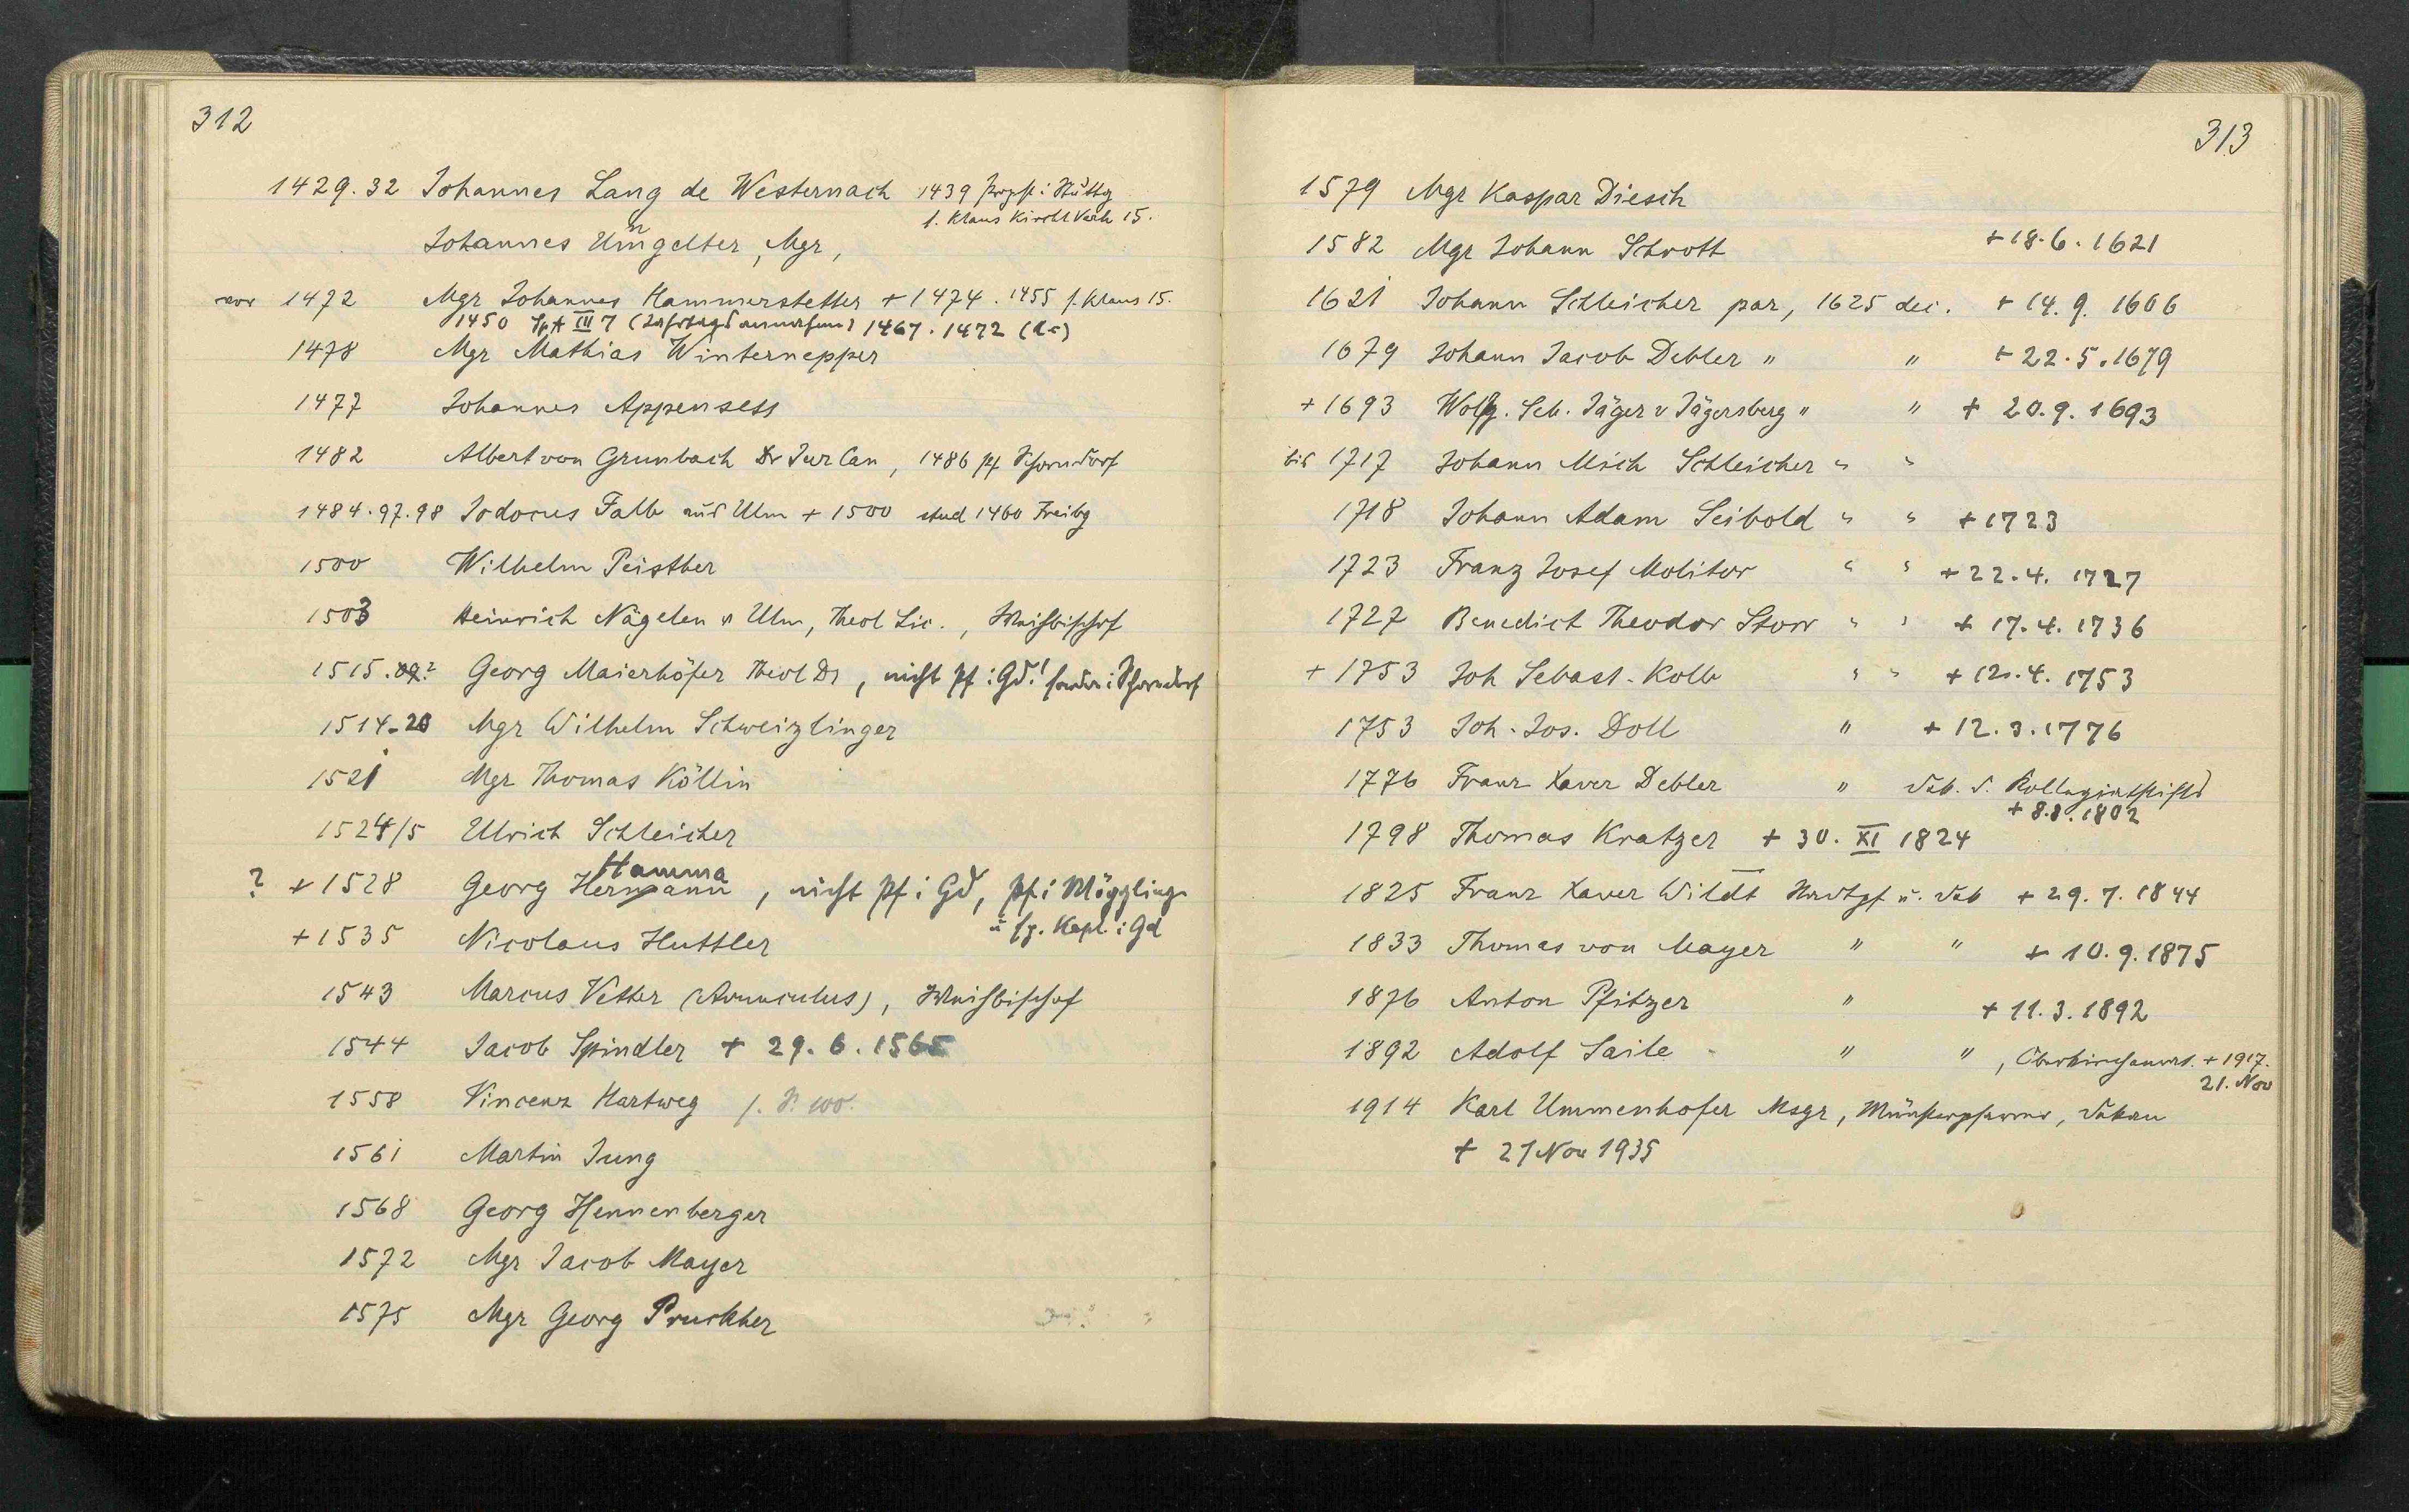 312
1429.32 Johannes Lang de Westernach 1439 Propst i Stuttg
s. Klaus Kirchl Verh 15.
Johannes Ungelter, Mgr,
vor 1472 Mgr Johannes Hammerstetter + 1474. 1455 s. Klaus 15.
1450 SpA III 7 (Jahrtags 1467. 1472
1478 Mgr Mathias Winternepper
1477 Johannes Appensess
1482 Albert von Grunbach Dr Jur Can, 1486 Pf Schorndorf
1484.97.98 Jodocus Falb aus Ulm + 1500 stud 1460 Freibg
1500 Wilhelm Peisther
1503 Heinrich Nägelen v Ulm, Theol Lic., Weihbischof
1515.09? Georg Maierhöfer Theol Dr, nicht Pf i Gd! sondern i Schorndorf
1514-20 Mgr Wilhelm Schweizlinger
1521 Mgr Thomas Köllin
1524/5 Ulrich Schleicher
Hamma
? + 1528 Georg Hermann, nicht Pf i Gd, Pf i Mögglingen
u Kapl. i Gd
+ 1535 Nicolaus Huttler
1543 Marcus Vetter (Avunculus), Weihbischof
1544 Jacob Spindler + 29.6.1565
1558 Vincenz Hartweg s. S. 100.
1561 Martin Jung
1568 Georg Hennenberger
1572 Mgr Jacob Mayer
1575 Mgr Georg Pruckher
313
1579 Mgr Kaspar Diesch
1582 Mgr Johann Schrott + 18.6.1621
1621 Johann Schleicher par, 1625 dec. + 14.9.1606
1679 Johann Jacob Debler " " + 22.5.1679
+ 1693 Wolfg. Seb. Jäger v Jägersberg " " + 20.9.1693
bis 1717 Johann Mich Schleicher " "
1718 Johann Adam Seibold " " + 1723
1723 Franz Josef Molitor " " + 22.4.1727
1727 Benedict Theodor Storr " " + 17.4.1736
+ 1753 Joh Sebast. Kolb " " + 12.4.1753
1753 Joh. Jos. Doll " + 12.3.1776
1776 Franz Xaver Debler " Dek. d. Kollegiatstifts
+ 8.8.1802
1798 Thomas Kratzer + 30. XI 1824
1825 Franz Xaver Wildt Stadtpf u. Dek + 29.7.1844
1833 Thomas von Mayer " " + 10.9.1875
1876 Anton Pfitzer " + 11.3.1892
1892 Adolf Saile " " , Oberkirchenrat. + 1917.
21. Nov
1914 Karl Ummenhofer Msgr, Münsterpfarrer, Dekan
+ 21 Nov 1935